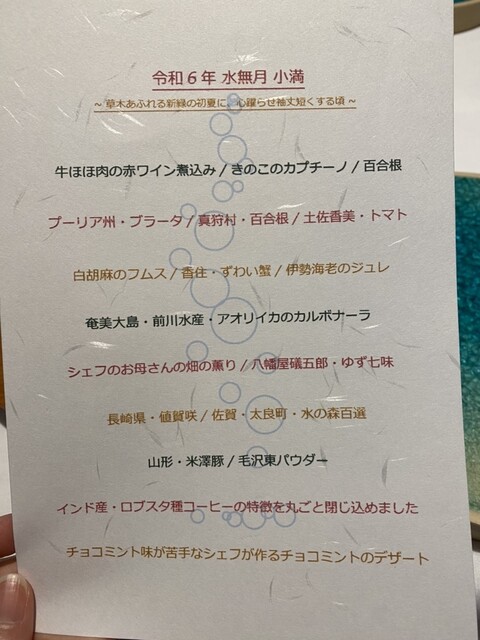 令和６年 水無月 小満
~ 草木あふれる新緑の初夏に、心躍らせ袖丈短くする頃 ~
牛ほほ肉の赤ワイン煮込み / きのこのカプチーノ / 百合根
プーリア州・ブラータ / 真狩村・百合根 / 土佐香美・トマト
白胡麻のフムス / 香住・ずわい蟹 / 伊勢海老のジュレ
奄美大島・前川水産・アオリイカのカルボナーラ
シェフのお母さんの畑の薫り / 八幡屋礒五郎・ゆず七味
長崎県・値賀咲 / 佐賀・太良町・水の森百選
山形・米澤豚 / 毛沢東パウダー
インド産・ロブスタ種コーヒーの特徴を丸ごと閉じ込めました
チョコミント味が苦手なシェフが作るチョコミントのデザート